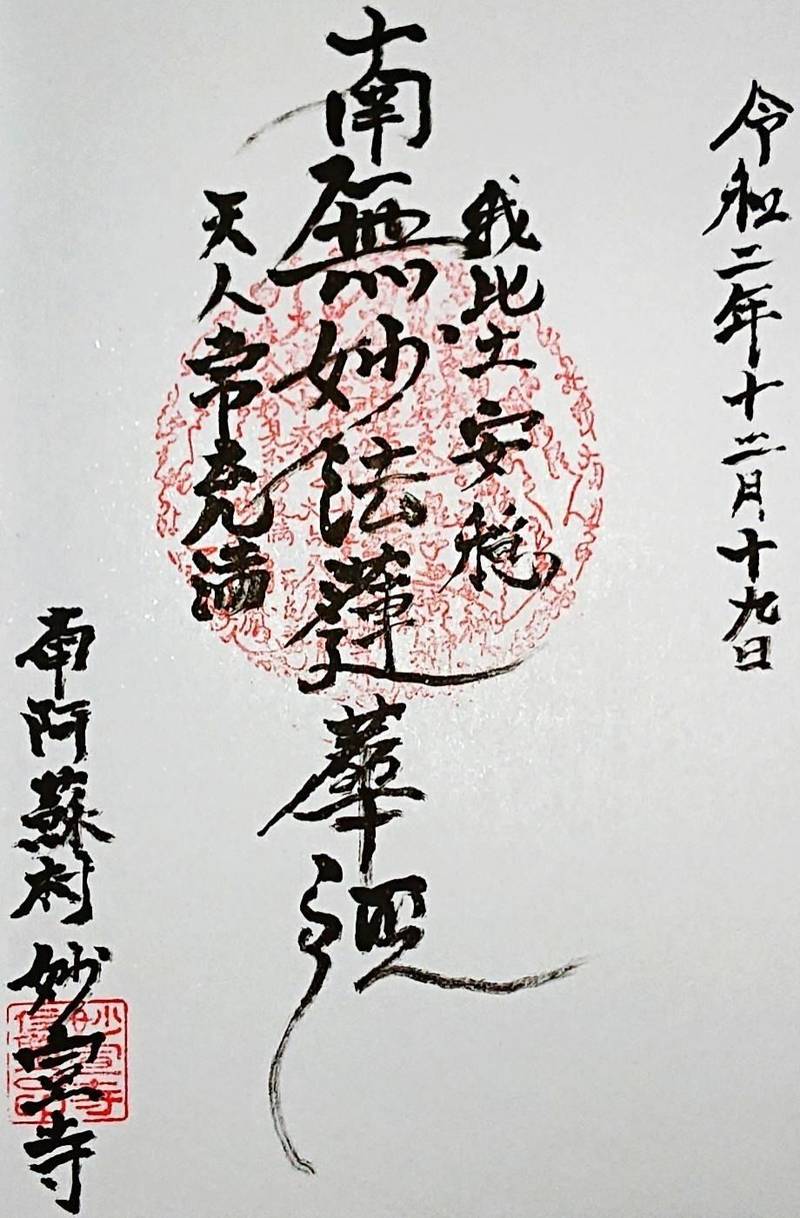 令和二年十二月十九日
我此土安穏
南無妙法蓮華経
天人常充満
南阿蘇村 妙宣寺
妙宣寺